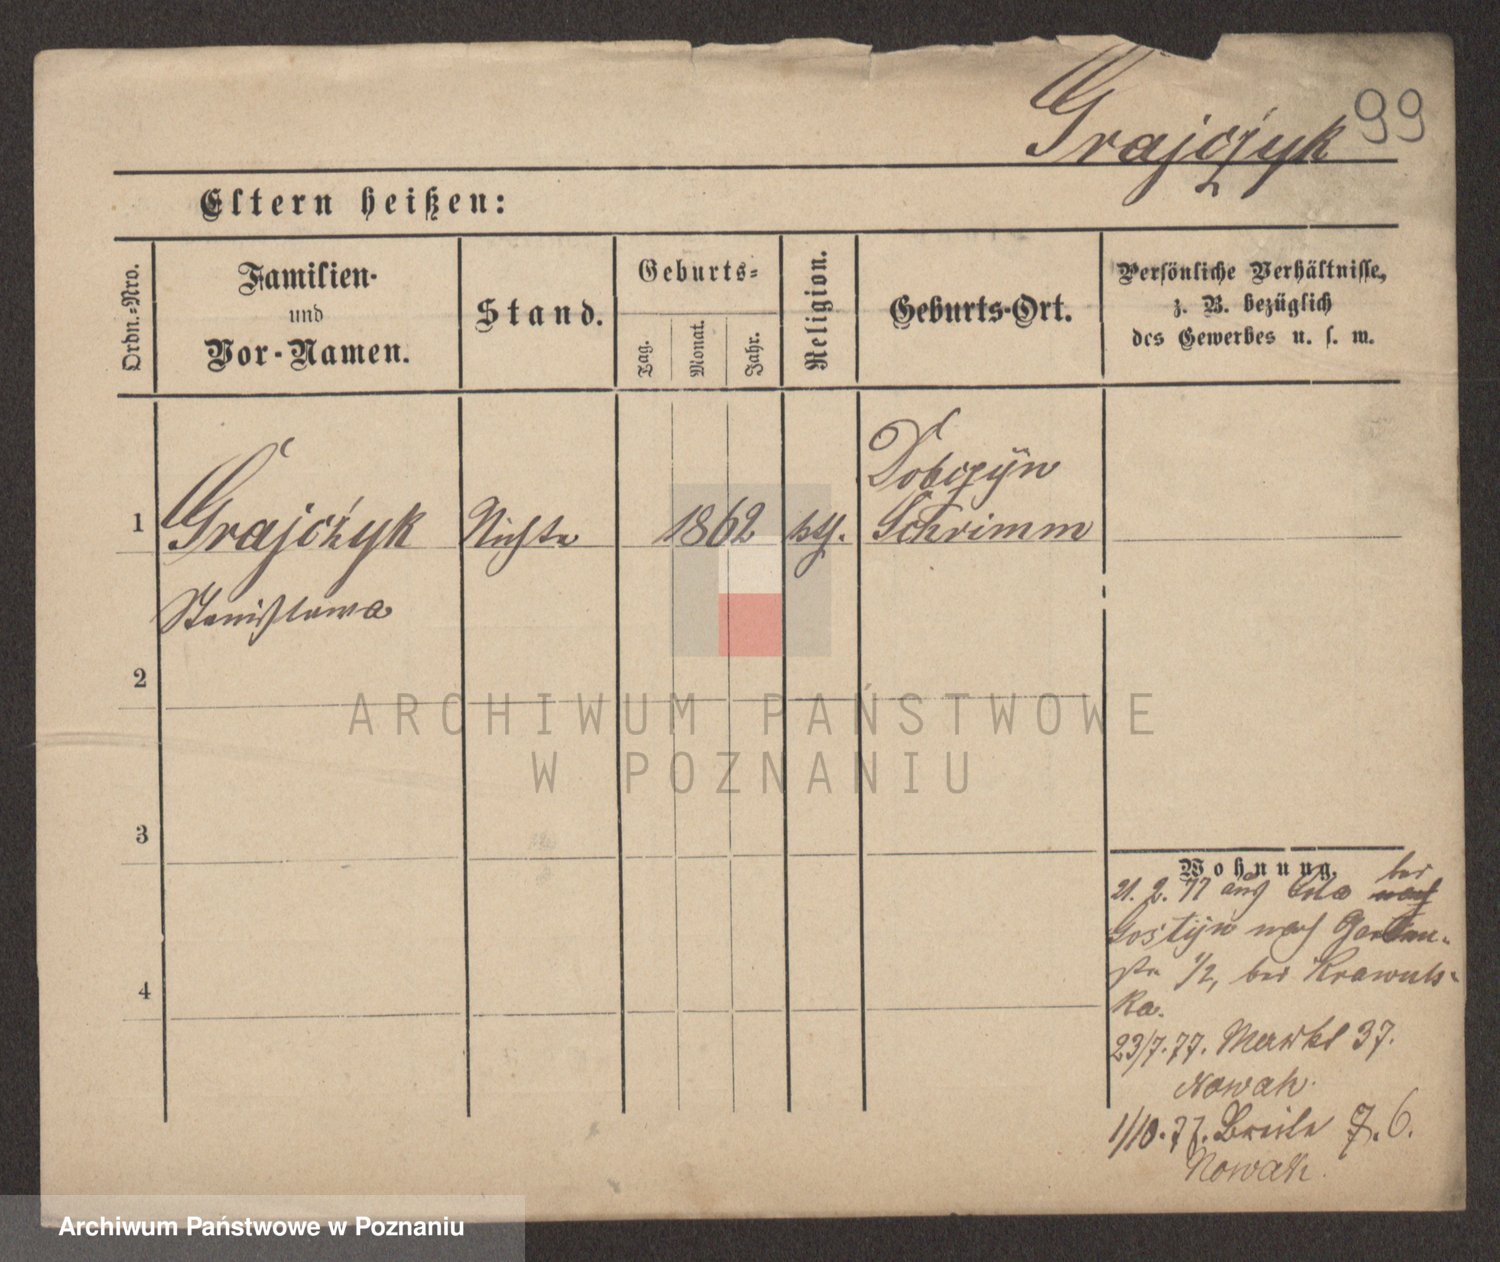 Grajczyk 99
Eltern heißen:
Ordn.-Nro.
Familien-
und
Vor-Namen.
Stand.
Geburts-
Tag.
Monat.
Jahr.
Religion.
Geburts-Ort.
Persönliche Verhältnisse,
z. B. bezüglich
des Gewerbes u. s. w.
1
Grajczyk
Stanislawa
Nichte
1862
kth.
Dobczyn
Schrimm
2
3
4
Wohnung.
21. 2. 77 aus bei nach
Gostyn nach Garten-
str 1/2, bei Krawuls-
ka.
23/7. 77. Markt 37.
Nowak.
1/10. 77. Breite 7. 6.
Nowak.
ARCHIWUM PAŃSTWOWE
W POZNANIU
Archiwum Państwowe w Poznaniu